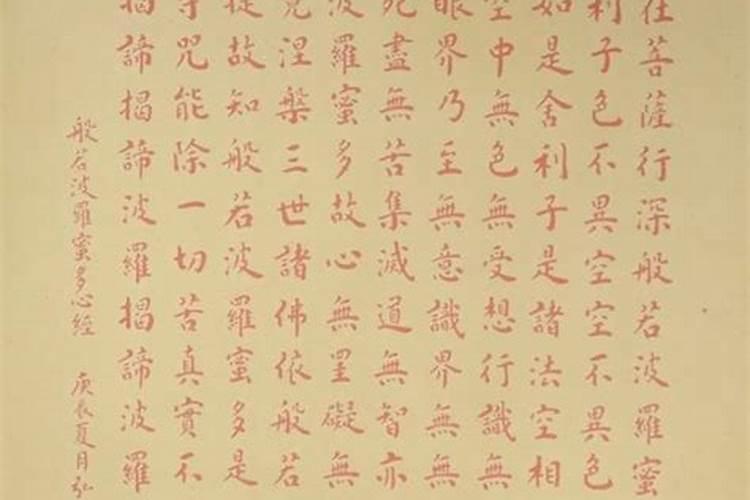 在菩薩行深般若波羅蜜
利子色不異空空不異色
如是舍利子是諸法空相
空中無色無受想行識無
眼界乃至無意識界無無
死盡無苦集滅道無智亦
波羅蜜多故心無罣礙無
竟涅槃三世諸佛依般若
提故知般若波羅蜜多是
等咒能除一切苦真實不
揭諦揭諦波羅揭諦波羅
般若波羅蜜多心經 庚辰夏月弘